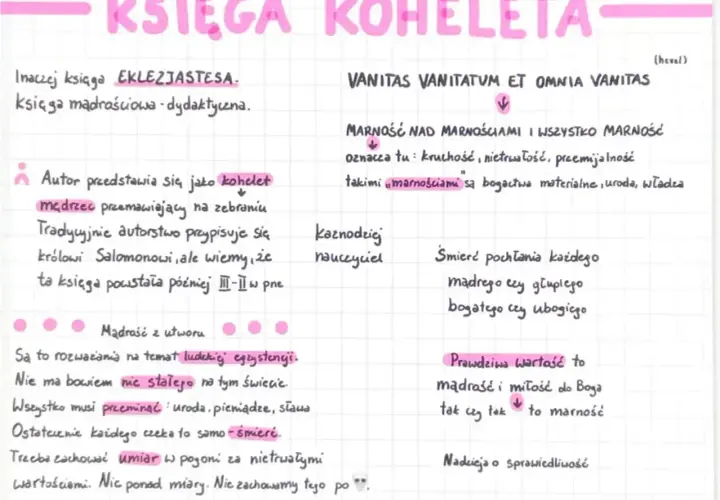 KSIĘGA KOHELETA
Inaczej księga EKLEZJASTESA.
księga mądrościowa - dydaktyczna.
Autor przedstawia się jako kohelet
mędrzec przemawiający na zebraniu
Tradycyjnie autorstwo przypisuje się
królowi Salomonowi, ale wiemy, że
ta księga powstała później III-II w pne
kaznodziej
nauczyciel
Mądrość z utworu
Są to rozważania na temat ludzkiej egzystencji.
Nie ma bowiem nic stałego na tym świecie.
Wszystko musi przeminąć: uroda, pieniądze, sława
Ostatecznie każdego czeka to samo - śmierć.
Trzeba zachować umiar w pogoni za nietrwałymi
wartościami. Nic ponad miarę. Nie zachowamy tego po 💀.
(heval)
VANITAS VANITATUM ET OMNIA VANITAS
MARNOŚĆ NAD MARNOŚCIAMI I WSZYSTKO MARNOŚĆ
oznacza tu: kruchość, nietrwałość, przemijalność
takimi „marnościami" są bogactwa materialne, uroda, władza
Śmierć pochłania każdego
mądrego czy głupiego
bogatego czy ubogiego
Prawdziwa wartość to
mądrość i miłość do Boga
tak czy tak to marność
Nadzieja o sprawiedliwość